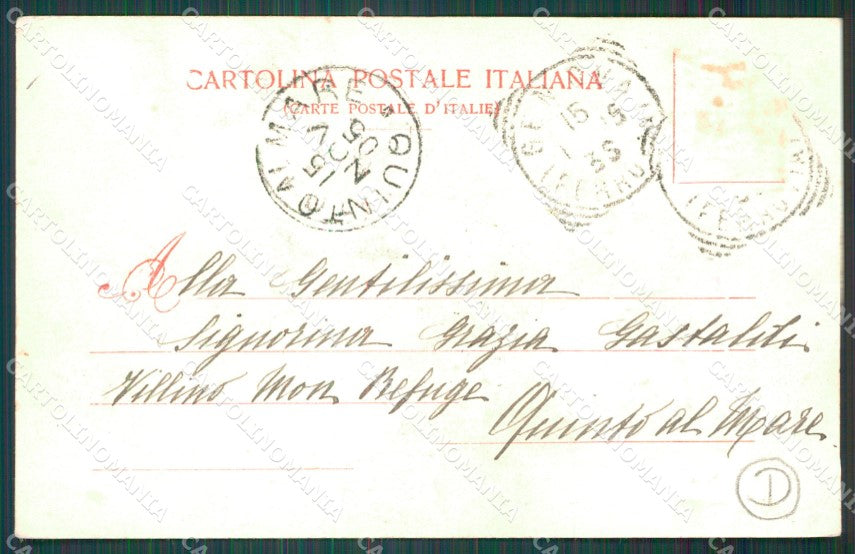 CARTOLINA POSTALE ITALIANA
(CARTE POSTALE D'ITALIE)
QUINTO AL MARE
Alla Gentilissima
Signorina Grazia Gastaldi
Villino Mon Refuge
Quinto al Mare
D
CARTOLINOMANIA